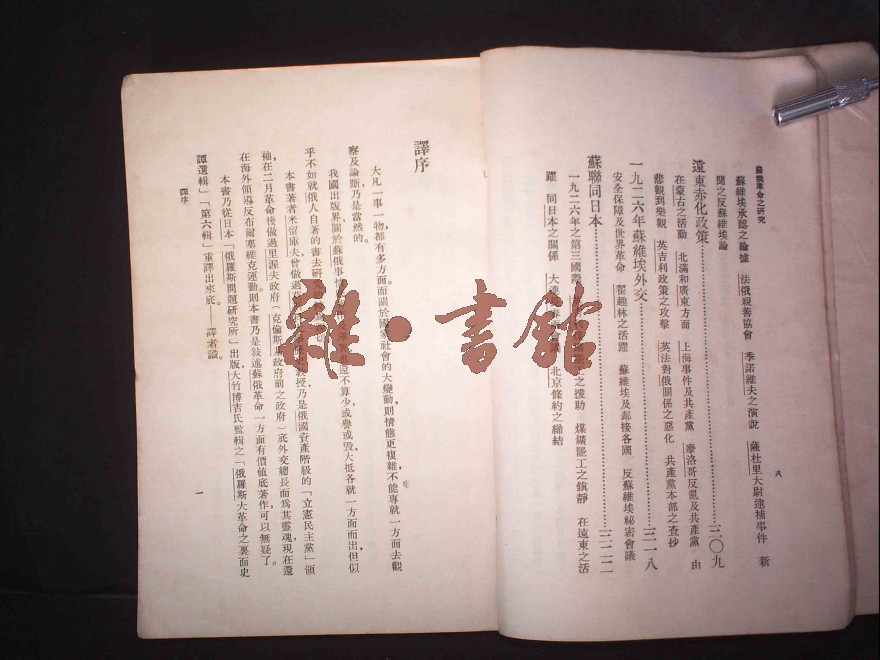 蘇俄革命之研究
八
蘇維埃承認之論據　法俄親善協會　季諾維夫之演說　薩杜里大尉逮捕事件　新
聞之反蘇維埃論
遠東赤化政策……三〇九
在蒙古之活動　北滿和廣東方面　上海事件及共產黨　摩洛哥反亂及共產黨　由
悲觀到樂觀　英吉利政策之攻擊　英法對俄關係之惡化　共產黨本部之查抄
一九二六年蘇維埃外交……三一八
安全保障及世界革命　翟趣林之活躍　蘇維埃及鄰接各國　反蘇維埃祕密會議
蘇聯同日本……三二二
一九二六年之第三國際　之援助　煤鑛罷工之鎮靜　在遠東之活
躍　同日本之關係　大連　北京條約之締結
譯序
大凡一事一物，都有多方面而關於國家社會的大變動，則情態更複雜，不能專就一方面去觀
察及論斷乃是當然的。
我國出版界關於蘇俄事　還不算少，或譽或毀，大抵各就一方面而出，但似
乎不如就俄人自著的書去研
本書著者米留庫夫曾做過　教授，乃是俄國資產階級的「立憲民主黨」領
袖，在二月革命後做過里渥夫政府（克倫斯基政府前之政府）底外交總長而為其靈魂，現在還
在海外領導反布爾塞維克運動。則本書乃是敍述蘇俄革命一方面有價值底著作，可以無疑了。
本書乃從日本「俄羅斯問題研究所」出版，大竹博吉氏監輯之「俄羅斯大革命之裏面史
譚選輯」「第六輯」重譯出來底。——譯者識。
譯序
一
雜·書館